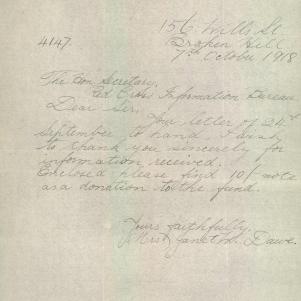 156 Wills St
Broken Hill
4147.
7th October 1918
The Hon Secretary,
Red Cross Information Bureau
Dear Sir,
Your letter of 24th
September to hand. I wish
to thank you sincerely for
information received.
Enclosed please find 10/- note
as a donation to the fund.
Yours faithfully,
Mrs Janet M. Dawe.